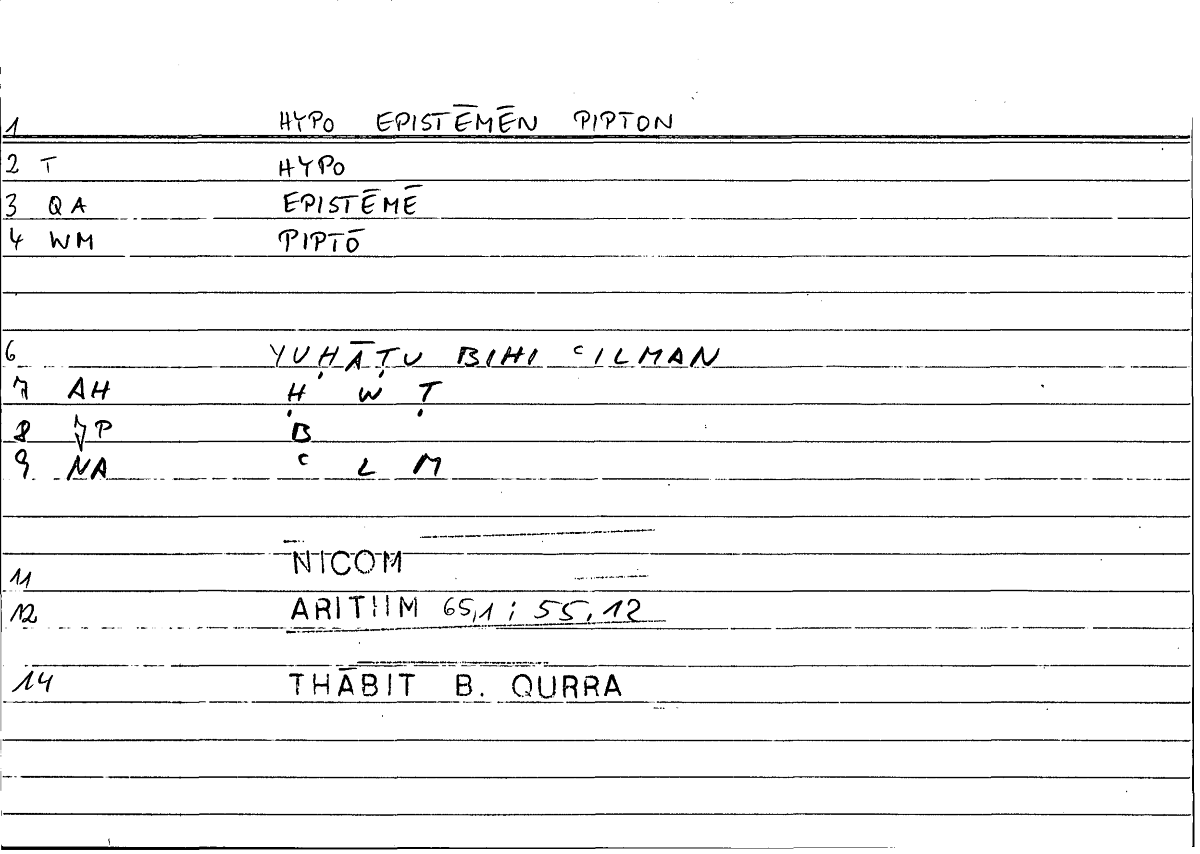 1 HYPO EPISTĒMĒN PIPTON
2 T HYPO
3 QA EPISTĒMĒ
4 WM PIPTŌ
6 YUḤĀṬU BIHI ᶜILMAN
7 AH Ḥ W Ṭ
8 JP B
9 NA ᶜ L M
11 NICOM
12 ARITHM 65,1 ; 55,12
14 THĀBIT B. QURRA